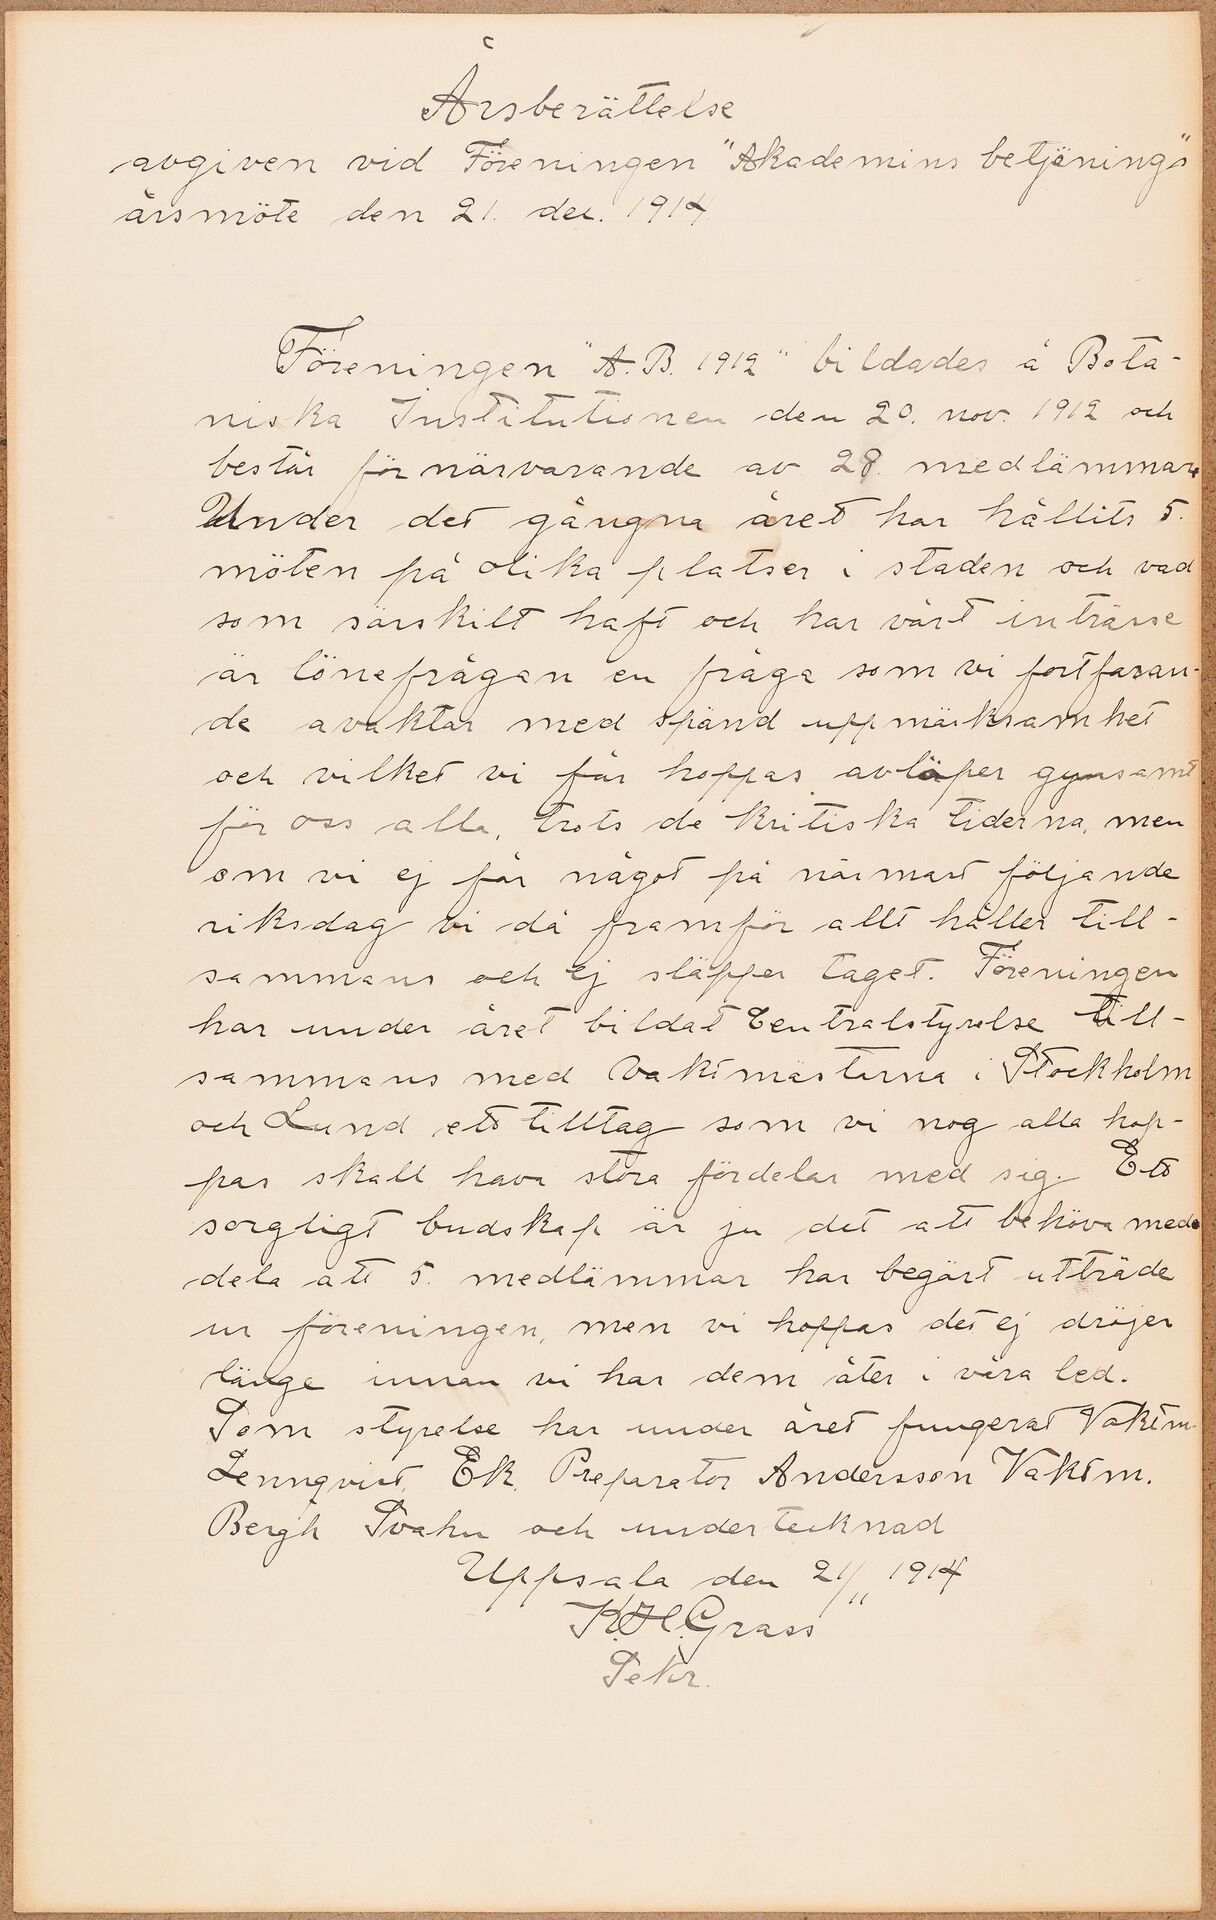 Årsberättelse
avgiven vid Föreningen "Akademins betjänings"
årsmöte den 21. dec. 1914.
Föreningen "A.B. 1912" bildades å Bota-
niska Institutionen den 20. nov. 1912 och
består för närvarande av 28. medlämmar.
Under det gångna året har hållits 5.
möten på olika platser i staden och vad
som särskilt haft och har vårt inträsse
är lönefrågan en fråga som vi fortfaran-
de avaktar med spänd uppmärksamhet
och vilket vi får hoppas avlöper gynsamt
för oss alla, trots de kritiska tiderna, men
om vi ej får något på närmast följande
riksdag vi då framför allt håller till-
sammans och ej släpper taget. Föreningen
har under året bildat Centralstyrelse till-
sammans med Vaktmästarna i Stockholm
och Lund ett tilltag som vi nog alla hop-
pas skall hava stora fördelar med sig. Ett
sorgligt budskap är ju det att behöva med-
dela att 5. medlämmar har begärt utträde
ur föreningen, men vi hoppas det ej dröjer
länge innan vi har dem åter i våra led.
Som styrelse har under året fungerat Vaktm.
Lennqvist, Ek, Preparator Andersson Vaktm.
Bergh Svahn och undertecknad
Uppsala den 21/11 1914
K.H.Grass
Sekr.